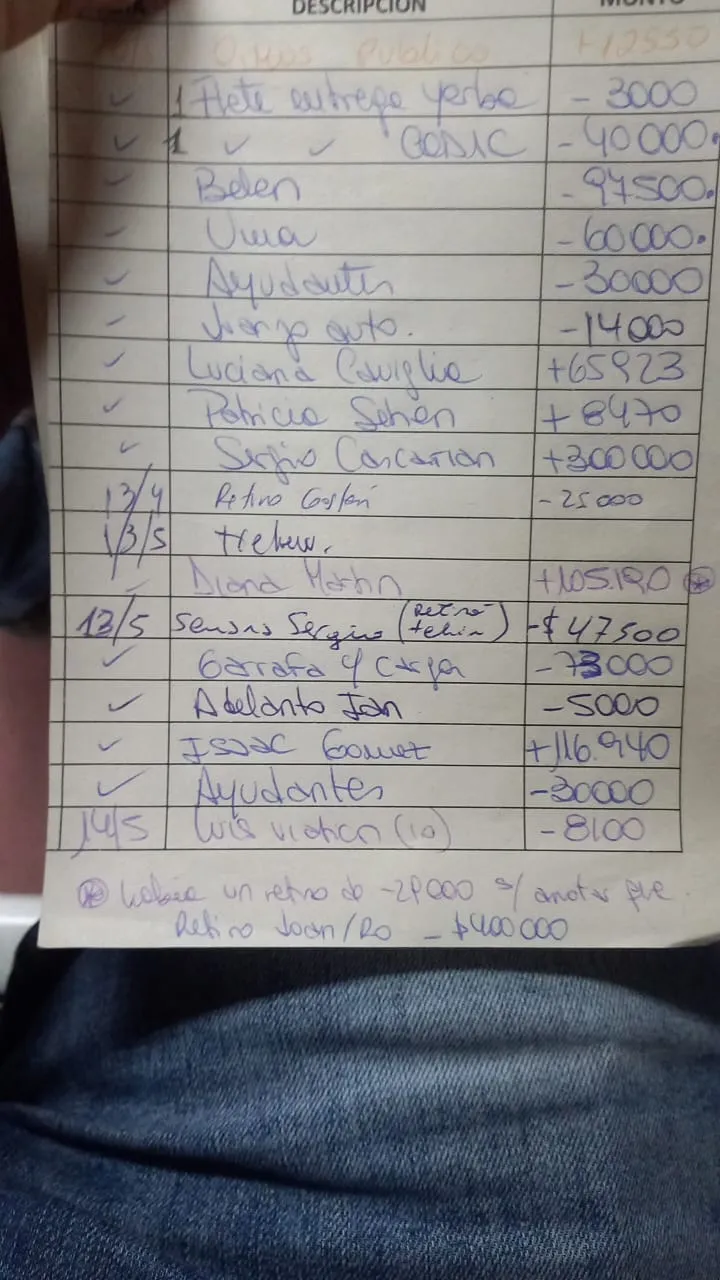 DESCRIPCION MONTO
Publico +12550
✓ 1 Flete entrega yerba - 3000
✓ 1 ✓ ✓ - 40000.
✓ Belen - 97500.
✓ - 60000.
✓ Ayudantes - 30000
✓ auto. - 14000
✓ Luciana Caviglia +65923
✓ Patricia + 8470
✓ Sergio +300000
13/4 Retiro Gastón - 25000
13/5
✓ Diana Martin +105.190 ⊛
13/5 Sergio (Retiro -$ 47500
✓ Garrafa y - 73000
✓ Adelanto Ian - 5000
✓ ISAAC Gomez +116.940
✓ Ayudantes -30000
14/5 Luis (10) - 8100
⊛ había un retiro de s/ anotar que
Retiro Joan/Ro - $400000